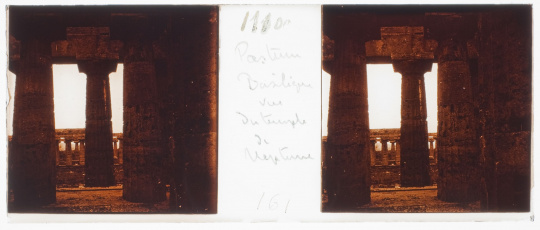 Pæstum
Basilique
vue
du temple
de
Neptune
161